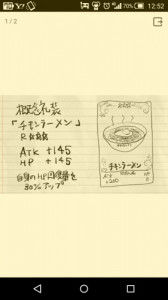 70% 12:52
1 / 2
概念礼装
「チキンラーメン」
R ☆☆☆
ATK +145
HP +145
自身のHP回復量を
30%アップ
チキンラーメン